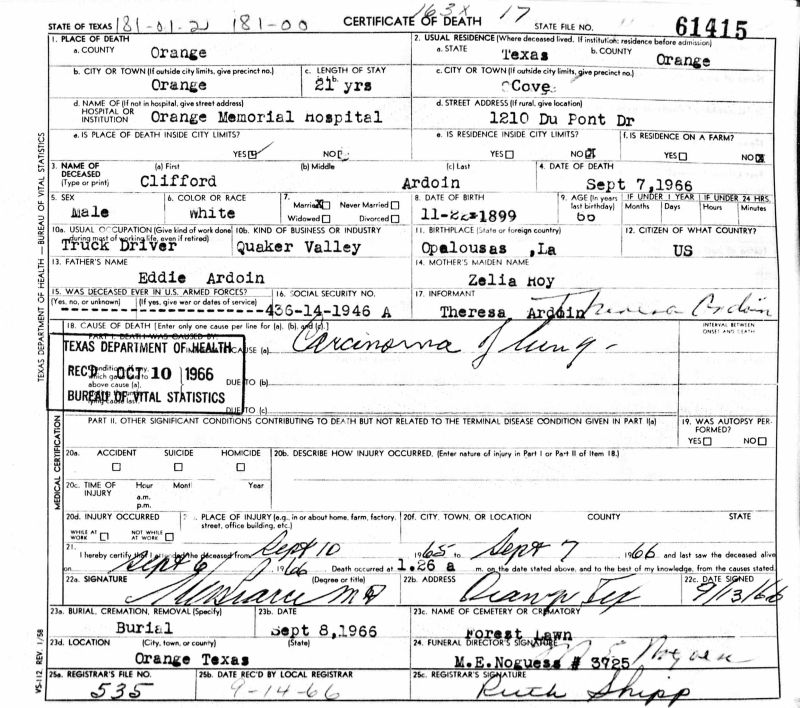 163x 17
STATE OF TEXAS 181-01.2 181-00 CERTIFICATE OF DEATH STATE FILE NO. 61415
1. PLACE OF DEATH
a. COUNTY Orange
2. USUAL RESIDENCE (Where deceased lived. If institution: residence before admission)
a. STATE Texas b. COUNTY Orange
b. CITY OR TOWN (If outside city limits, give precinct no.) Orange
c. LENGTH OF STAY 21 yrs
c. CITY OR TOWN (If outside city limits, give precinct no.) Cove
d. NAME OF (If not in hospital, give street address)
HOSPITAL OR
INSTITUTION Orange Memorial Hospital
d. STREET ADDRESS (If rural, give location)
1210 Du Pont Dr
e. IS PLACE OF DEATH INSIDE CITY LIMITS?
YES NO
e. IS RESIDENCE INSIDE CITY LIMITS?
YES NO X
f. IS RESIDENCE ON A FARM?
YES NO X
3. NAME OF
DECEASED
(Type or print)
(a) First (b) Middle (c) Last
Clifford Ardoin
4. DATE OF DEATH
Sept 7,1966
5. SEX
Male
6. COLOR OR RACE
White
7.
Married X Never Married
Widowed Divorced
8. DATE OF BIRTH
11-22-1899
9. AGE (In years
last birthday)
66
IF UNDER 1 YEAR
Months Days
IF UNDER 24 HRS.
Hours Minutes
10a. USUAL OCCUPATION (Give kind of work done
during most of working life, even if retired)
Truck Driver
10b. KIND OF BUSINESS OR INDUSTRY
Quaker Valley
11. BIRTHPLACE (State or foreign country)
Opalousas ,La
12. CITIZEN OF WHAT COUNTRY?
US
13. FATHER'S NAME
Eddie Ardoin
14. MOTHER'S MAIDEN NAME
Zelia Roy
15. WAS DECEASED EVER IN U.S. ARMED FORCES?
(Yes, no, or unknown) (If yes, give war or dates of service)
16. SOCIAL SECURITY NO.
436-14-1946 A
17. INFORMANT
Theresa Ardoin Theresa Ardoin
18. CAUSE OF DEATH [Enter only one cause per line for (a), (b), and (c).]
INTERVAL BETWEEN
ONSET AND DEATH
PART I. DEATH WAS CAUSED BY:
IMMEDIATE CAUSE (a) Carcinoma of lung
TEXAS DEPARTMENT OF HEALTH
REC'D OCT 10 1966
BUREAU OF VITAL STATISTICS
DUE TO (b)
DUE TO (c)
PART II. OTHER SIGNIFICANT CONDITIONS CONTRIBUTING TO DEATH BUT NOT RELATED TO THE TERMINAL DISEASE CONDITION GIVEN IN PART I(a)
19. WAS AUTOPSY PER-
FORMED?
YES NO
20a. ACCIDENT SUICIDE HOMICIDE
20b. DESCRIBE HOW INJURY OCCURRED. (Enter nature of injury in Part I or Part II of Item 18.)
20c. TIME OF
INJURY
Hour
a.m.
p.m.
Month Year
20d. INJURY OCCURRED
WHILE AT
WORK
NOT WHILE
AT WORK
PLACE OF INJURY (e.g., in or about home, farm, factory,
street, office building, etc.)
20f. CITY, TOWN, OR LOCATION COUNTY STATE
21. I hereby certify that I attended the deceased from Sept 10 1965 to Sept 7, 1966 and last saw the deceased alive
on Sept 6, 1966 Death occurred at 1.26 a m. on the date stated above, and to the best of my knowledge, from the causes stated.
22a. SIGNATURE (Degree or title)
M D
22b. ADDRESS
Orange Tex
22c. DATE SIGNED
9/13/66
23a. BURIAL, CREMATION, REMOVAL (Specify)
Burial
23b. DATE
Sept 8,1966
23c. NAME OF CEMETERY OR CREMATORY
Forest Lawn
23d. LOCATION (City, town, or county) (State)
Orange Texas
24. FUNERAL DIRECTOR'S SIGNATURE
M.E.Noguess # 3725
25a. REGISTRAR'S FILE NO.
535
25b. DATE REC'D BY LOCAL REGISTRAR
9-14-66
25c. REGISTRAR'S SIGNATURE
Ruth Shipp
TEXAS DEPARTMENT OF HEALTH — BUREAU OF VITAL STATISTICS
MEDICAL CERTIFICATION
VS-112 REV. 1/58